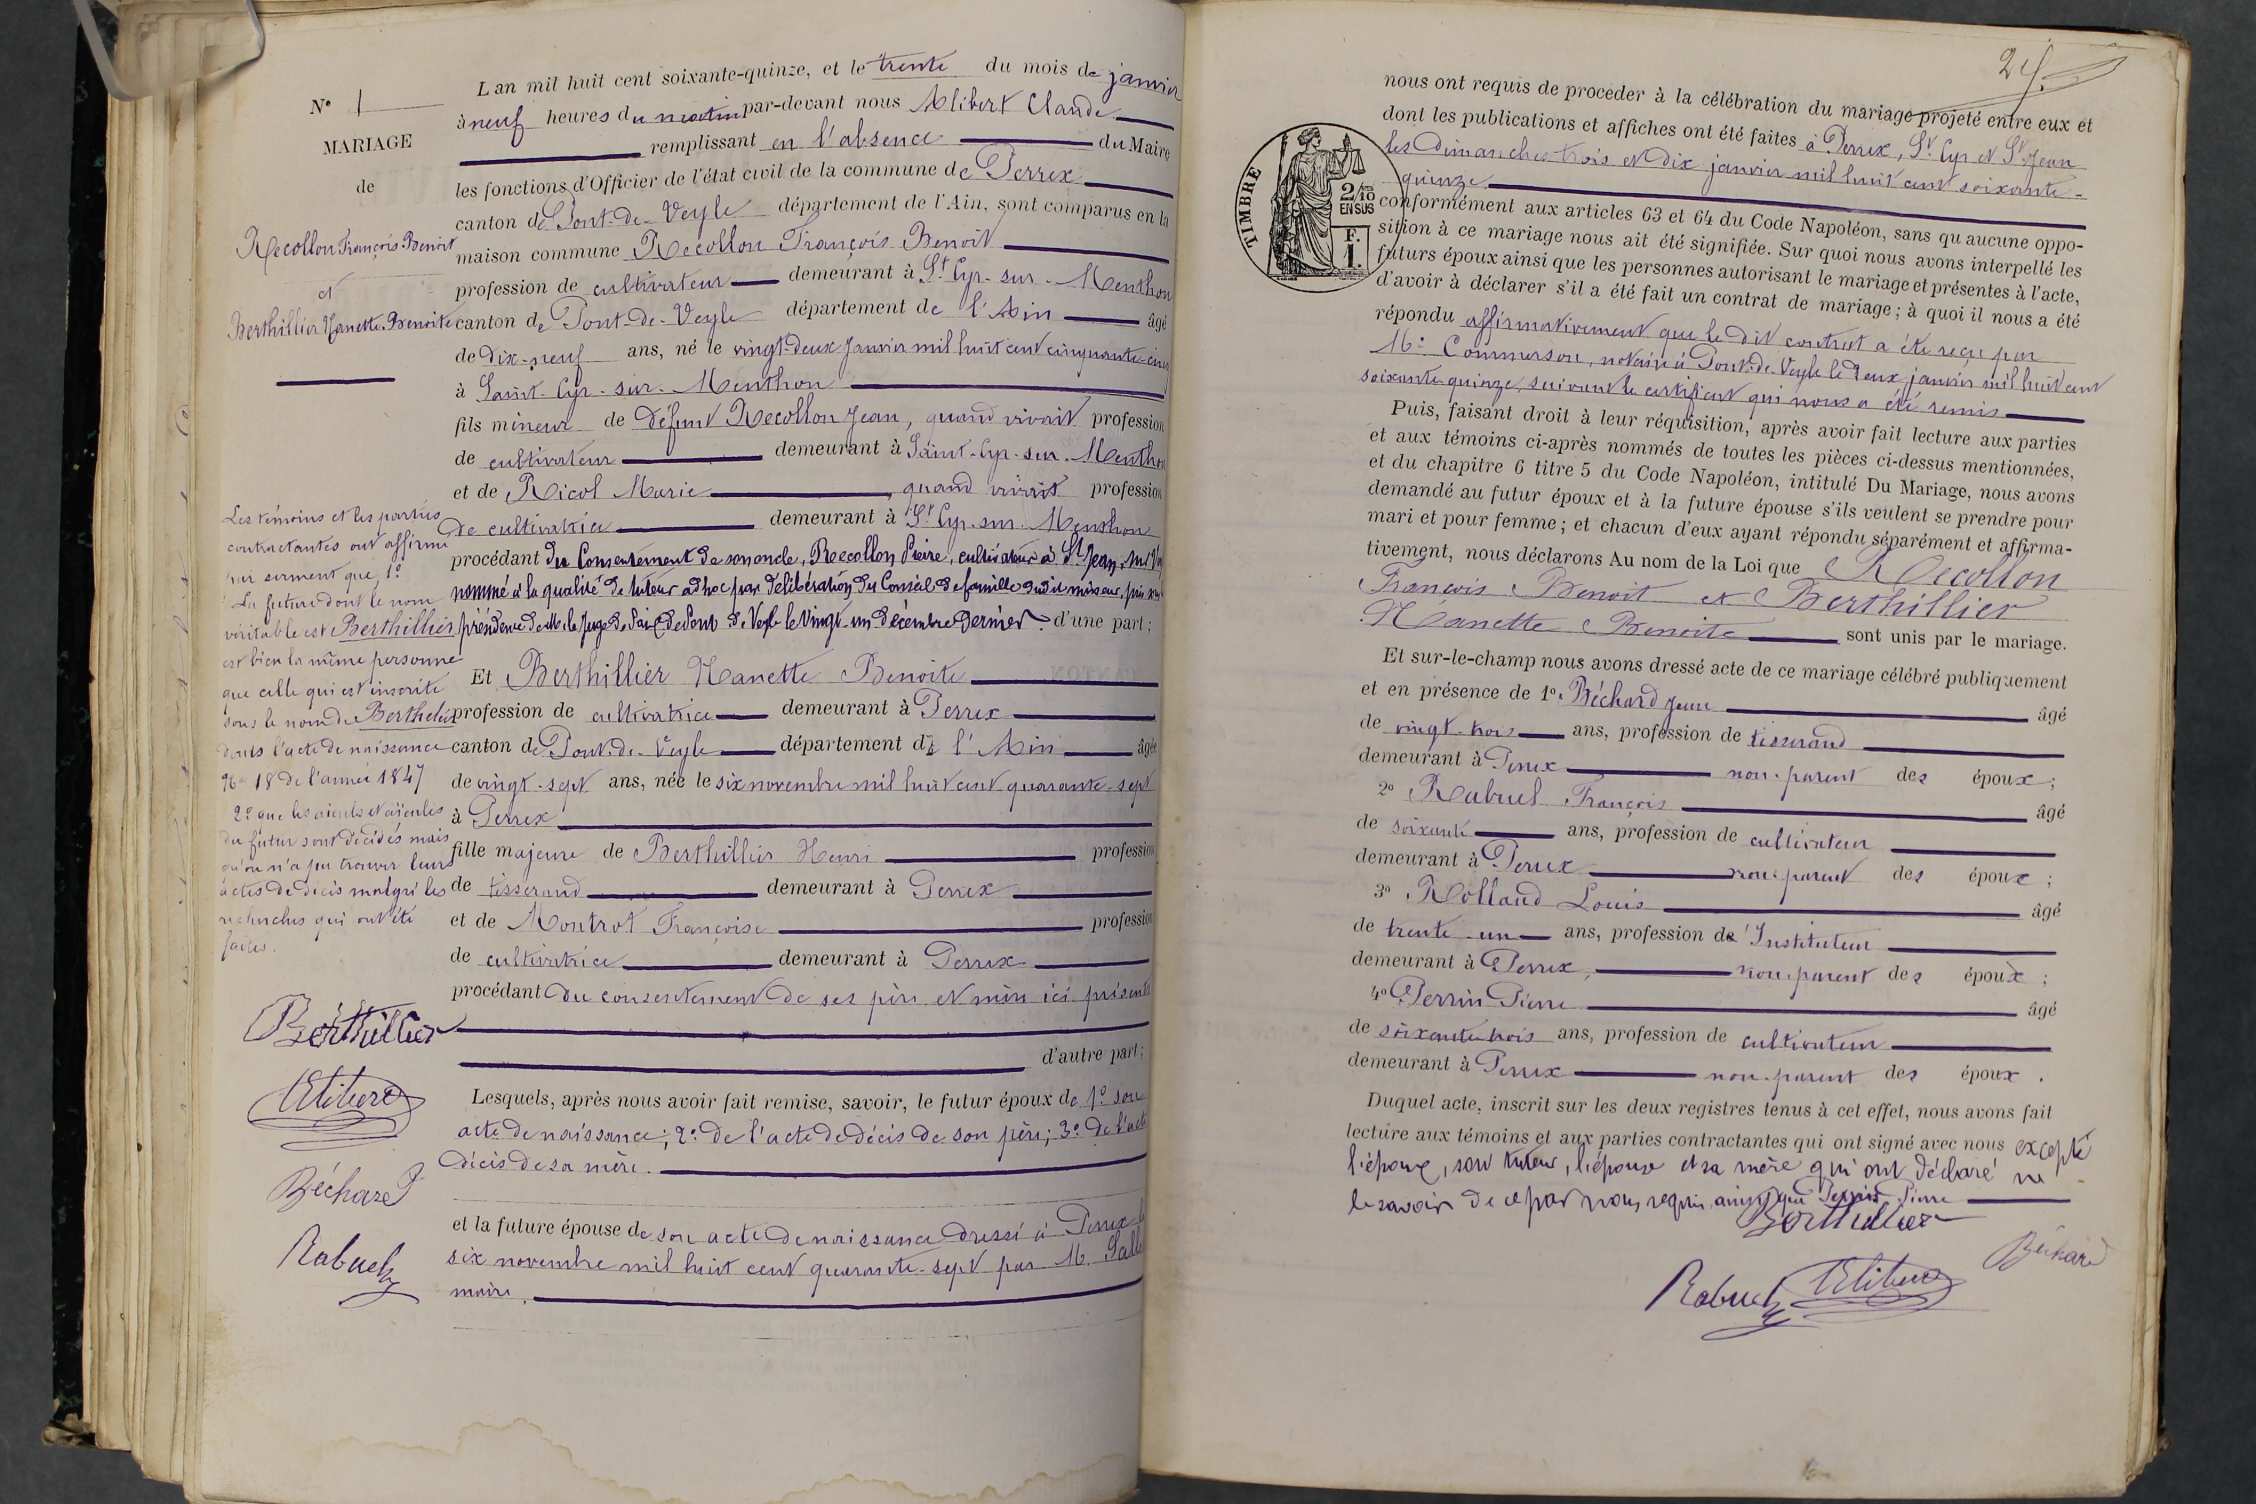 N° 1
MARIAGE
de
Recollon François Benoit
et
Berthillier Nanette Benoite
Les témoins et les parties
contractantes ont affirmé
par serment que, 1°
La future dont le nom
véritable est Berthillier
est bien la même personne
que celle qui est inscrite
sous le nom de Berthelier
dans l'acte de naissance
N° 18 de l'année 1847
2° que les aieuls et aieules
du futur sont décédés mais
qu'on n'a pu trouver leurs
actes de décès malgré les
recherches qui ont été
faites.
Berthillier
Alibert
Béchard
Rabuel
L'an mil huit cent soixante-quinze, et le trente du mois de janvier
à neuf heures du matin par-devant nous Alibert Claude
remplissant en l'absence du Maire
les fonctions d'Officier de l'état civil de la commune de Perrex
canton de Pont-de-Veyle département de l'Ain, sont comparus en la
maison commune Recollon François Benoit
profession de cultivateur demeurant à St Cyr-sur-Menthon
canton de Pont-de-Veyle département de l'Ain âgé
de dix-neuf ans, né le vingt-deux janvier mil huit cent cinquante-cinq
à Saint-Cyr-sur-Menthon
fils mineur de défunt Recollon Jean, quand vivait profession
de cultivateur demeurant à Saint-Cyr-sur-Menthon
et de Ricol Marie, quand vivait profession
de cultivatrice demeurant à St Cyr-sur-Menthon
procédant du Consentement de son oncle, Recollon Pierre, cultivateur à St Jean sur V
nommé à la qualité de tuteur adhoc par délibération du Conseil de famille dudit mineur, pris sous
présidence de M. le Juge de Paix de Pont de Veyle le vingt-un décembre dernier. d'une part;
Et Berthillier Nanette Benoite
profession de cultivatrice demeurant à Perrex
canton de Pont-de-Veyle département de l'Ain âgée
de vingt-sept ans, née le six novembre mil huit cent quarante-sept
à Perrex
fille majeure de Berthillier Henri profession
de tisserand demeurant à Perrex
et de Montrot Françoise profession
de cultivatrice demeurant à Perrex
procédant du consentement de ses père et mère ici présents
d'autre part;
Lesquels, après nous avoir fait remise, savoir, le futur époux de 1° son
acte de naissance; 2° de l'acte de décès de son père; 3° de l'acte
décès de sa mère.
et la future épouse de son acte de naissance dressé à Perrex le
six novembre mil huit cent quarante-sept par M.
maire.
24
nous ont requis de proceder à la célébration du mariage projeté entre eux et
dont les publications et affiches ont été faites à Perrex, St Cyr et St Jean
les dimanches trois et dix janvier mil huit cent soixante-
quinze
TIMBRE
2/10
EN SUS
F.
1.
conformément aux articles 63 et 64 du Code Napoléon, sans qu'aucune oppo-
sition à ce mariage nous ait été signifiée. Sur quoi nous avons interpellé les
futurs époux ainsi que les personnes autorisant le mariage et présentes à l'acte,
d'avoir à déclarer s'il a été fait un contrat de mariage; à quoi il nous a été
répondu affirmativement que le dit contrat a été reçu par
Me Commerson, notaire à Pont-de-Veyle le deux janvier mil huit cent
soixante-quinze, suivant le certificat qui nous a été remis
Puis, faisant droit à leur réquisition, après avoir fait lecture aux parties
et aux témoins ci-après nommés de toutes les pièces ci-dessus mentionnées,
et du chapitre 6 titre 5 du Code Napoléon, intitulé Du Mariage, nous avons
demandé au futur époux et à la future épouse s'ils veulent se prendre pour
mari et pour femme; et chacun d'eux ayant répondu séparément et affirma-
tivement, nous déclarons Au nom de la Loi que Recollon
François Benoit et Berthillier
Nanette Benoite sont unis par le mariage.
Et sur-le-champ nous avons dressé acte de ce mariage célébré publiquement
et en présence de 1° Béchard Jean âgé
de vingt-trois ans, profession de tisserand
demeurant à Perrex non-parent des époux;
2° Rabuel François âgé
de soixante ans, profession de cultivateur
demeurant à Perrex non-parent des époux;
3° Rolland Louis âgé
de trente-un ans, profession de Instituteur
demeurant à Perrex, non-parent des époux;
4° Perrin Pierre âgé
de soixante-trois ans, profession de cultivateur
demeurant à Perrex non-parent des époux.
Duquel acte, inscrit sur les deux registres tenus à cet effet, nous avons fait
lecture aux témoins et aux parties contractantes qui ont signé avec nous excepté
l'époux, son tuteur, l'épouse et sa mère qui ont déclaré ne
le savoir de ce par nous requis, ainsi que Perrin Pierre
Berthillier
Béchard
Rabuel
Alibert